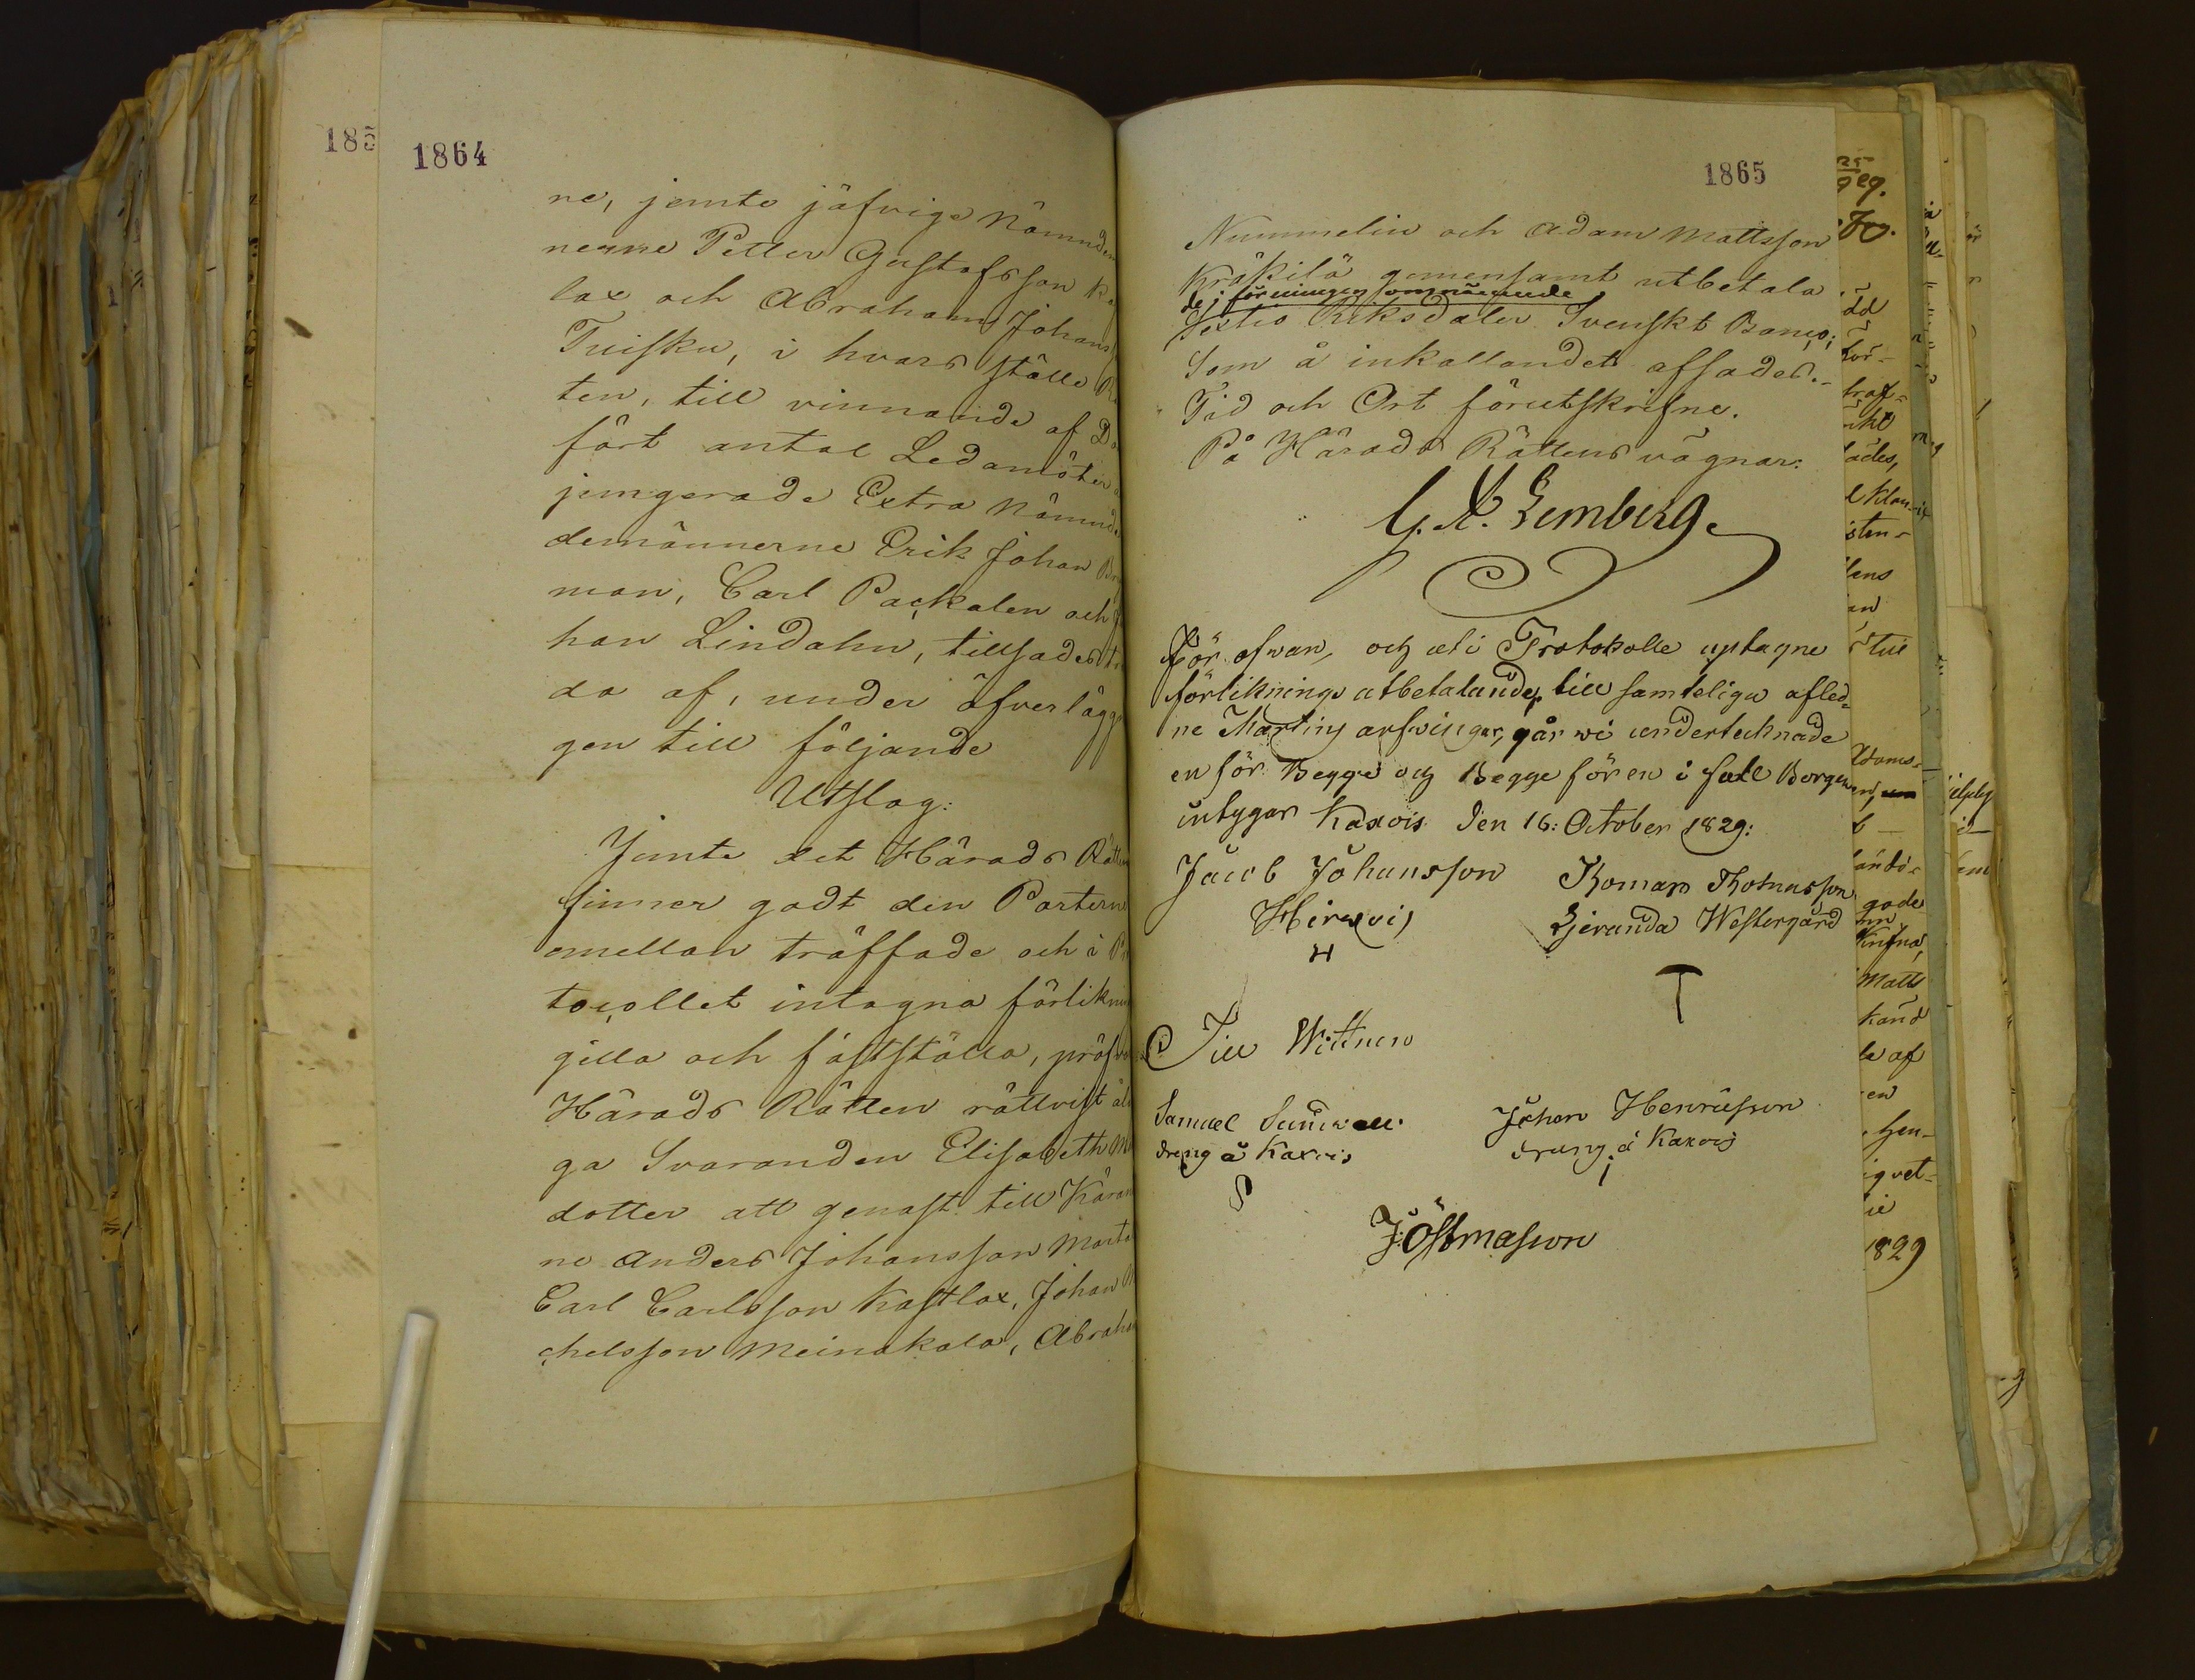 185
1864
ne, jemte jäfvige Nämnden
nerne Petter Gustafsson Ka
lax och Abraham Johans
Tuisku, i hvars ställe Rä
ten, till vinnande af Do
fört antal Ledamöter a
jungerade Extra Nämnde
demännerne Erik Johan
man, Carl Packalen och Jo
han Lindahn, tillsades
da af, under öfverlägg
gen till följande
Utslag:
Jemte det Härads Rätten
finner godt den Parterne
emellan träffade och i Pro
tocollet intagna förliknin
gilla och fastställa, pröfva
Härads Rätten rättvist ål
ga Svaranden Elisabeth Ma
dotter att genast till Käran
ne Anders Johansson Martis
Carl Carlsson Kastlax, Johan
chelsson Meinakala, Abraha
1865
Nummelin och Adam Mattsson
Kräkilä gemensamt utbetala
de i föreningen omnämnde
Sextio Riksdaler Svenskt Banco;
Som å inkallandet afsades.-
Tid och Ort förutskrifne.
På Härads Rättens vägnar:
G. A. Lemberg.
För ofwan, och uti Protokolle uptagne
förliknings utbetalande till samteliga afled-
ne Martins arfwingar, går wi undertecknade
en för Begge och Begge för en i full Borgen
intygar Kaxois den 16: October 1829:
Jacob Johansson
Hirwois
Thomas Thomasson
Gjeranda Westergård
Till Wittnen
Samuel Sundwall
dreng å Kaxois
Johan Henricsson
dreng å Kaxois
J: Östmasson
1829